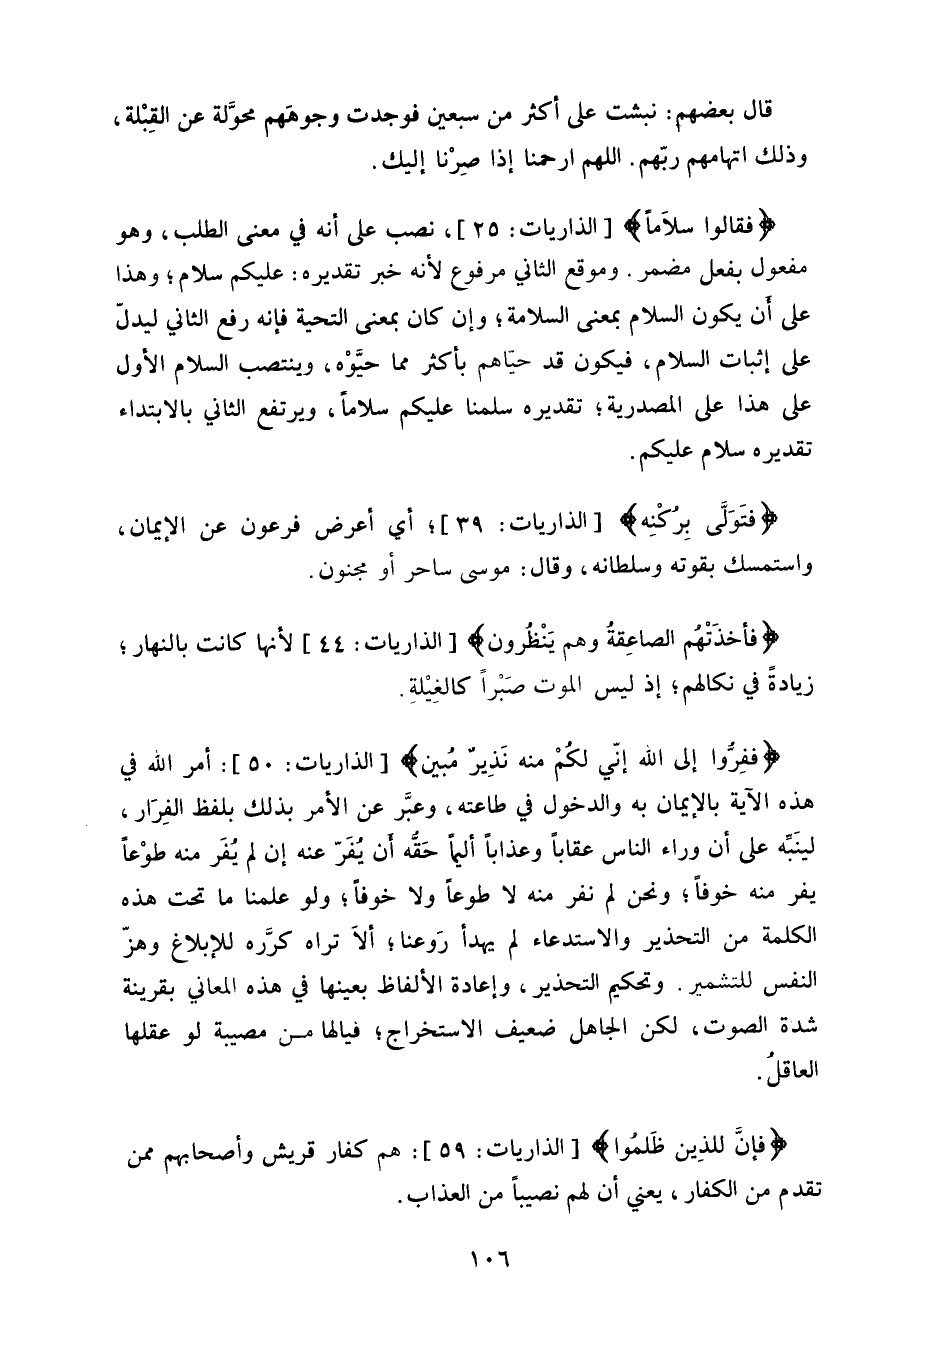 قال بعضهم: نبشت على أكثر من سبعين فوجدت وجوهَهم محوَّلة عن القِبْلة،
وذلك اتهامهم ربّهم. اللهم ارحمنا إذا صِرْنا إليك.
﴿فقالوا سلاَماً﴾ [الذاريات: ٢٥]، نصب على أنه في معنى الطلب، وهو
مفعول بفعل مضمر. وموقع الثاني مرفوع لأنه خبر تقديره: عليكم سلام؛ وهذا
على أَن يكون السلام بمعنى السلامة؛ وإن كان بمعنى التحية فإنه رفع الثاني ليدلّ
على إثبات السلام، فيكون قد حيّاهم بأكثر مما حيَّوْه، وينتصب السلام الأول
على هذا على المصدرية؛ تقديره سلمنا عليكم سلاماً، ويرتفع الثاني بالابتداء
تقديره سلام عليكم.
﴿فتَوَلَّى بِرُكْنِه﴾ [الذاريات: ٣٩]؛ أي أعرض فرعون عن الإيمان،
واستمسك بقوته وسلطانه، وقال: موسى ساحر أو مجنون.
﴿فأخذَتْهُم الصاعِقةُ وهم يَنْظُرون﴾ [الذاريات: ٤٤] لأنها كانت بالنهار؛
زيادةً في نكالهم؛ إذ ليس الموت صَبْراً كالغِيْلةِ.
﴿ففِرُّوا إلى الله إنّي لكُمْ منه نَذِيرٌ مُبين﴾ [الذاريات: ٥٠]: أمر الله في
هذه الآية بالإيمان به والدخول في طاعته، وعبَّر عن الأمر بذلك بلفظ الفِرَار،
لينَبِّه على أن وراء الناس عقاباً وعذاباً أليماً حَقُّه أَن يُفَرّ عنه إن لم يُفَر منه طوْعاً
يفر منه خوفاً؛ ونحن لم نفر منه لا طوعاً ولا خوفاً؛ ولو علمنا ما تحت هذه
الكلمة من التحذير والاستدعاء لم يهدأ رَوعنا؛ ألاَ تراه كرَّره للإبلاغ وهزّ
النفس للتشمير. وتحكيم التحذير، وإعادة الألفاظ بعينها في هذه المعاني بقرينة
شدة الصوت، لكن الجاهل ضعيف الاستخراج؛ فيالها من مصيبة لو عقلها
العاقلُ.
﴿فإنَّ للذِين ظَلمُوا﴾ [الذاريات: ٥٩]: هم كفار قريش وأصحابهم ممن
تقدم من الكفار، يعني أن لهم نصيباً من العذاب.
١٠٦